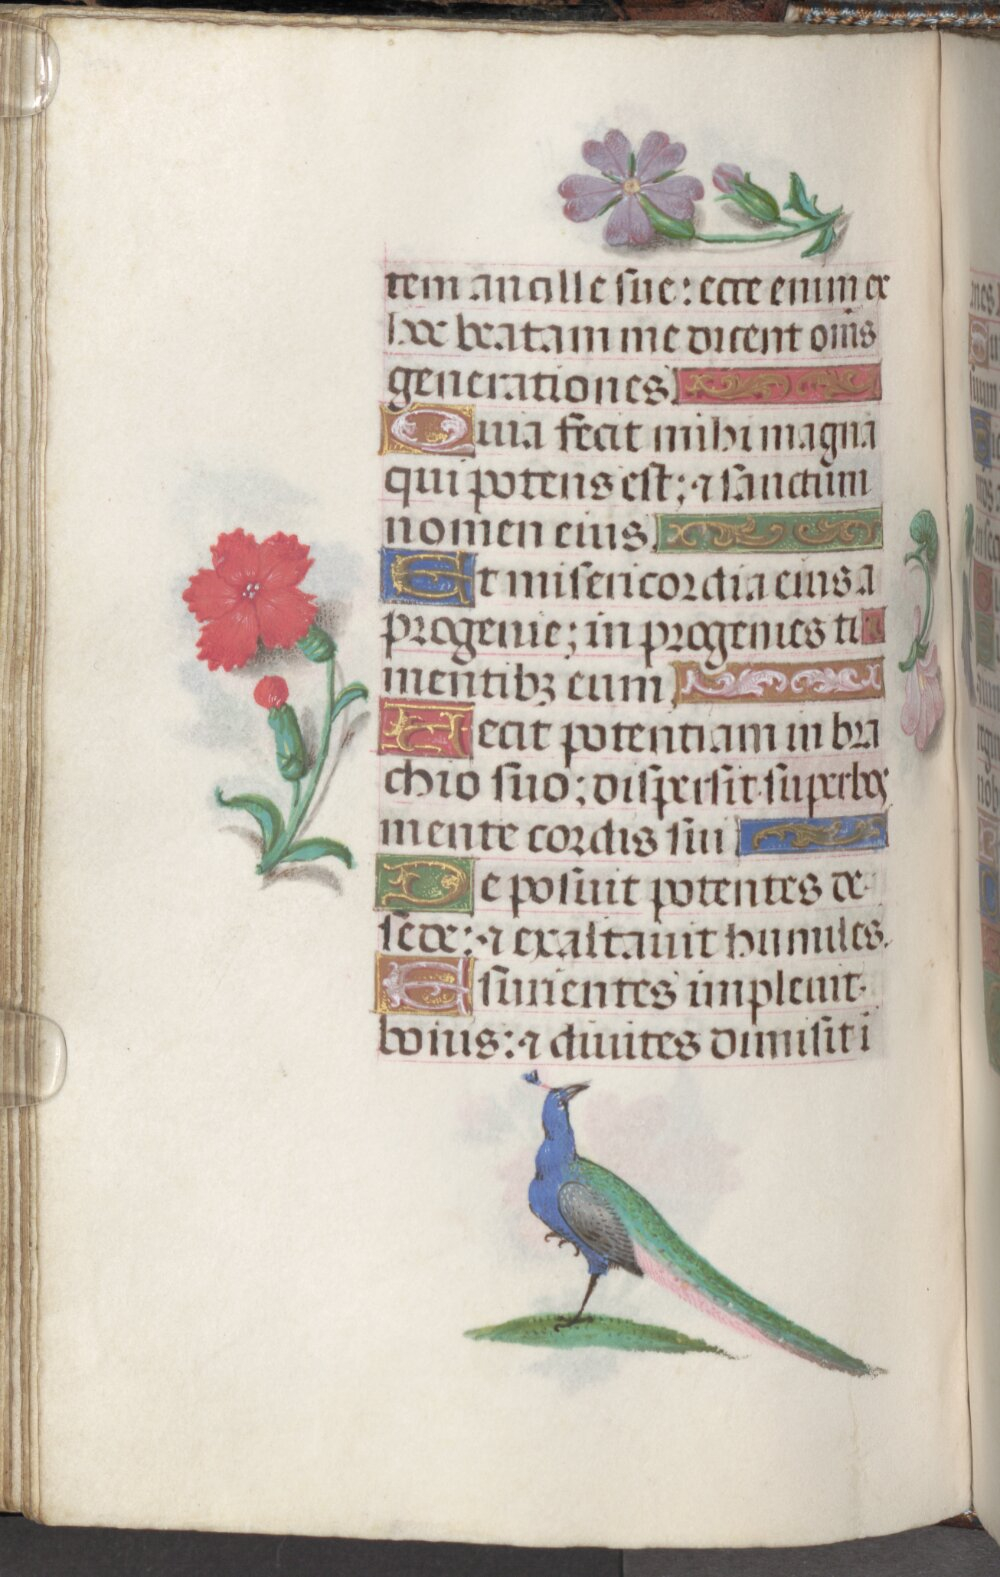 tem ancille sue: ecce enim ex
hoc beatam me dicent om̄s
generationes.
Quia fecit mihi magna
qui potens est: ⁊ sanctum
nomen eius.
Et misericordia eius a
progenie: in progenies ti
mentibꝫ eum.
Fecit potentiam in bra
chio suo: dispersit superbos
mente cordis sui
Deposuit potentes de
sede: ⁊ exaltauit humiles.
Esurientes impleuit
boīus: ⁊ diuites dimisit i